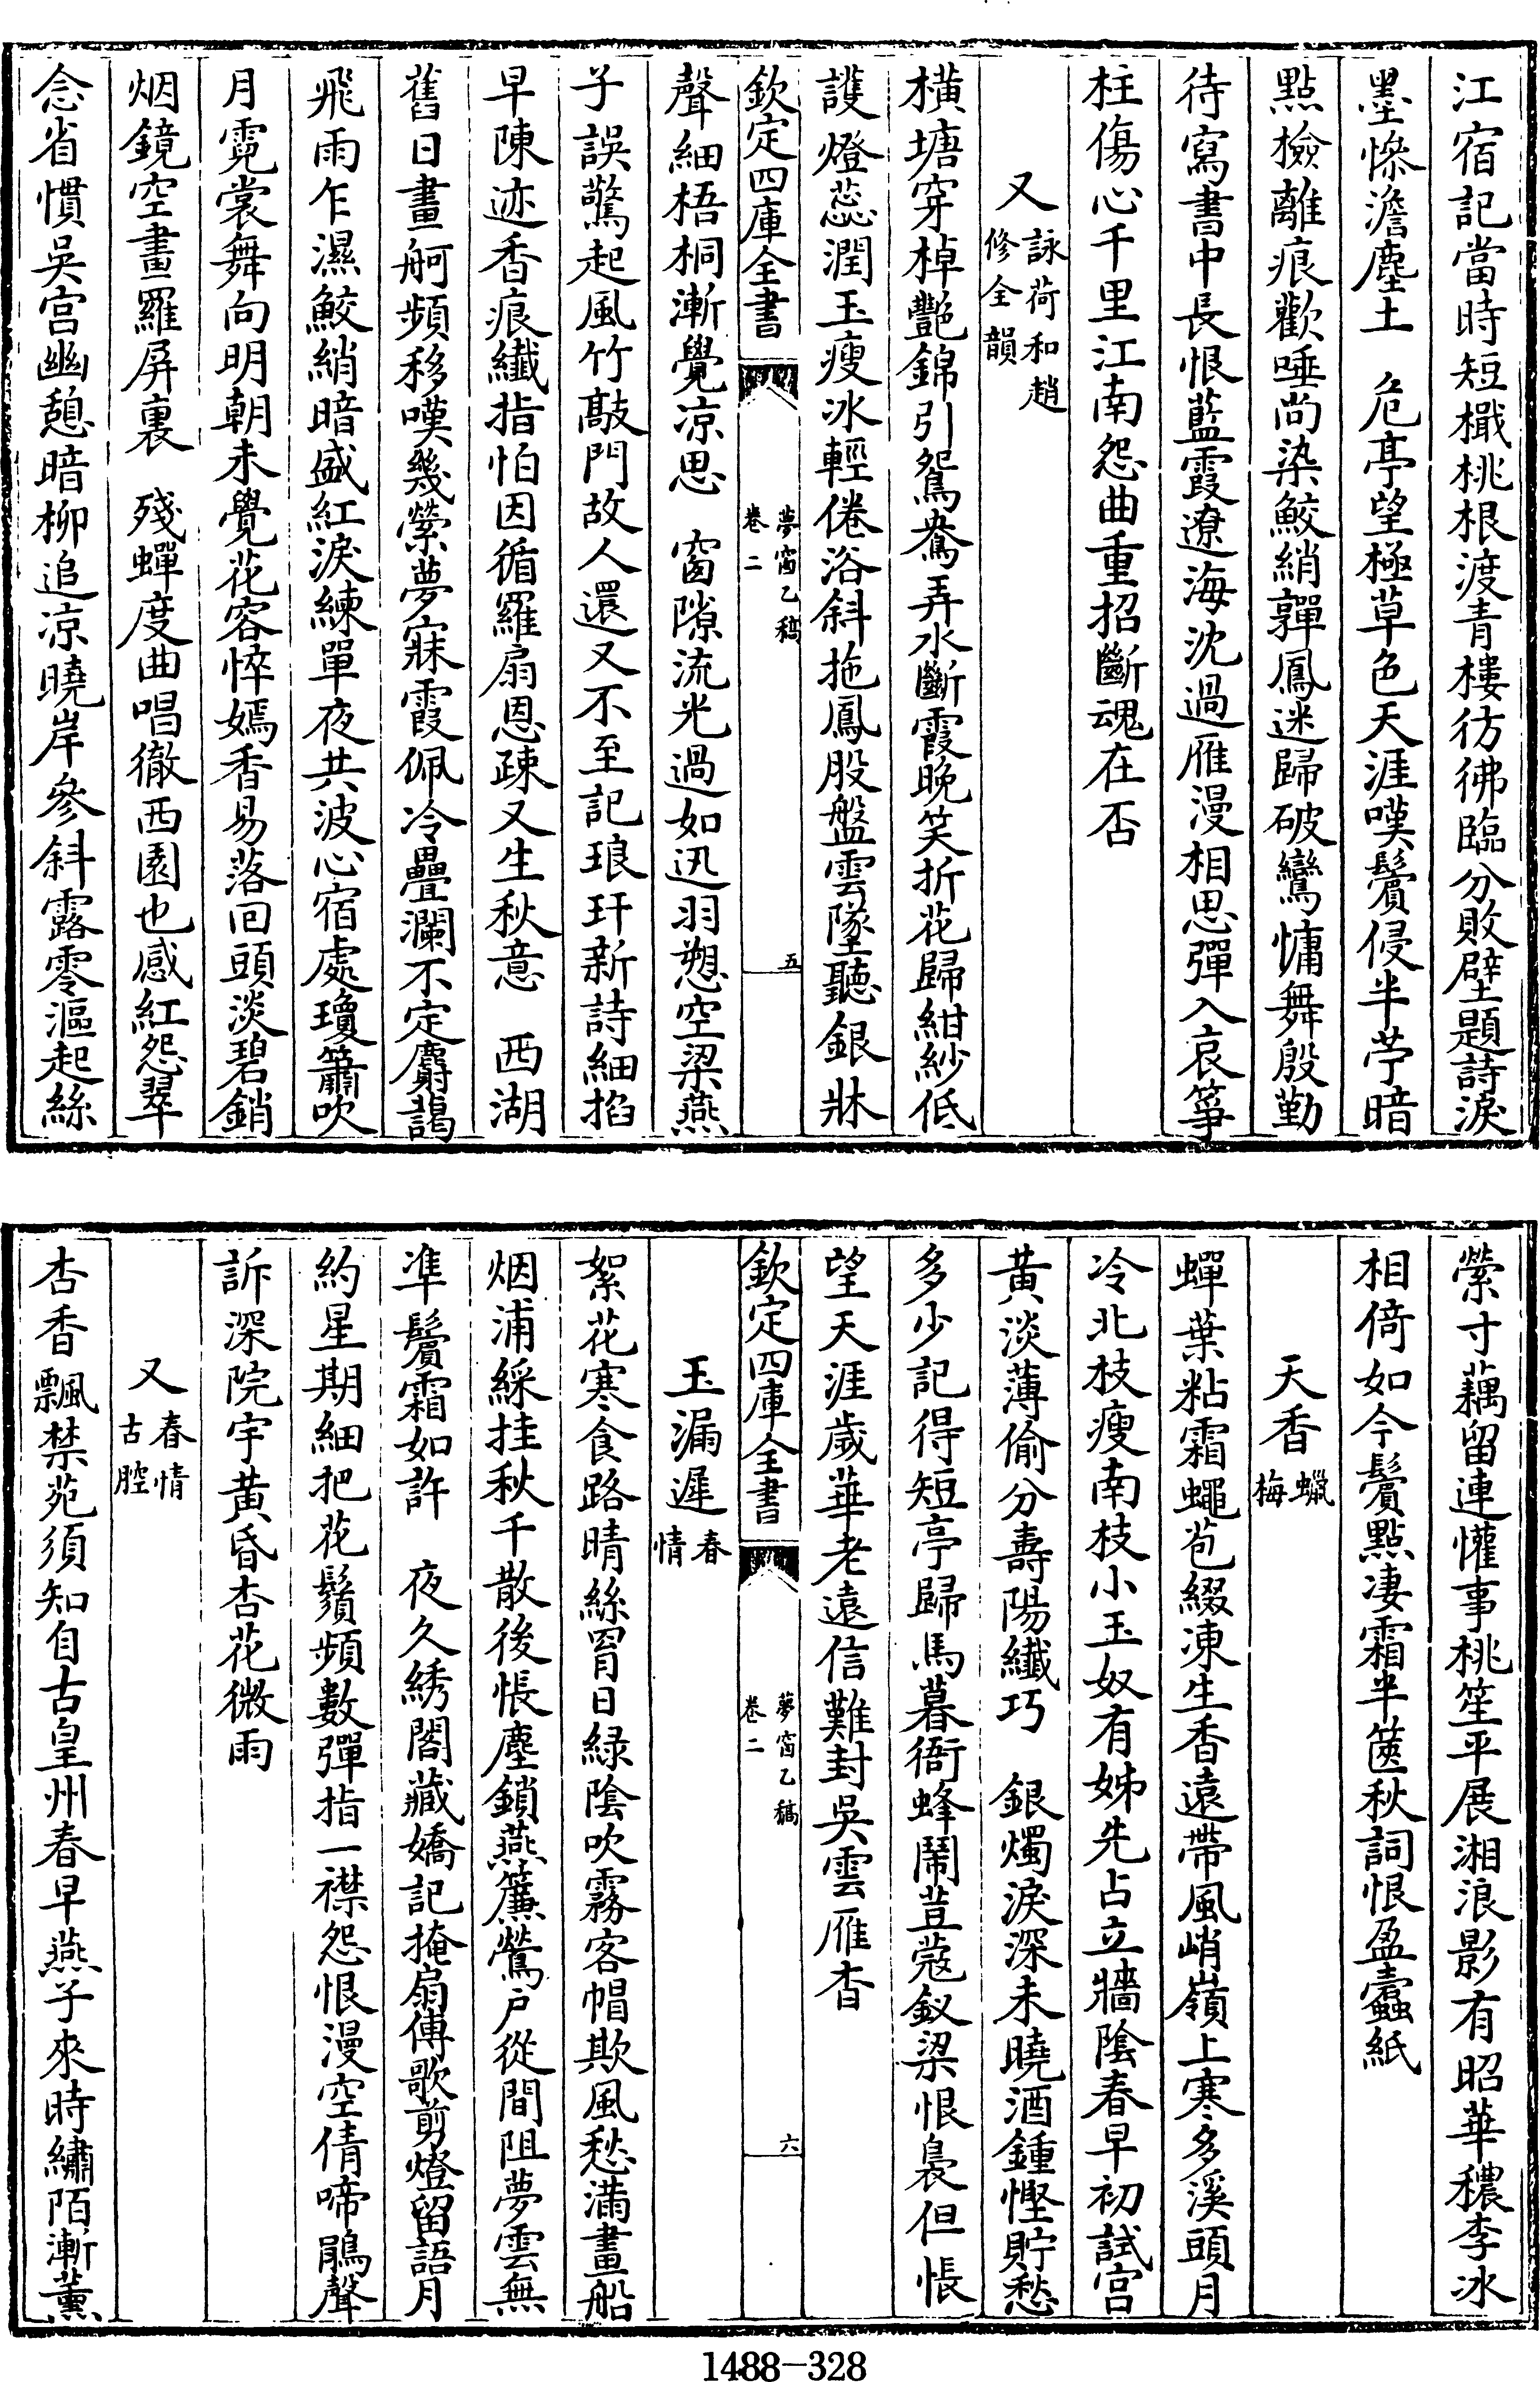 江宿記當時短檝桃根渡青樓彷彿臨分敗壁題詩淚
墨慘澹塵土　危亭望極草色天涯嘆鬢侵半苧暗
點檢離痕歡唾尚染鮫綃嚲鳳迷歸破鸞慵舞殷勤
待寫書中長恨藍霞遼海沈過雁漫相思彈入哀箏
柱傷心千里江南怨曲重招斷魂在否
又詠荷和趙修全韻
橫塘穿棹艷錦引鴛鴦弄水斷霞晚笑折花歸紺紗低
護燈蕊潤玉瘦冰輕倦浴斜拖鳳股盤雲墜聽銀牀
欽定四庫全書　夢窗乙稿卷二　五
聲細梧桐漸覺凉思　窗隙流光過如迅羽愬空梁燕
子誤驚起風竹敲門故人還又不至記琅玕新詩細掐
早陳迹香痕纖指怕因循羅扇恩疎又生秋意　西湖
舊日畫舸頻移嘆幾縈夢寐霞佩冷疊瀾不定麝靄
飛雨乍濕鮫綃暗盛紅淚練單夜共波心宿處瓊簫吹
月霓裳舞向明朝未覺花容悴嫣香易落回頭淡碧銷
烟鏡空畫羅屏裏　殘蟬度曲唱徹西園也感紅怨翠
念省慣吳宮幽憩暗柳追凉曉岸參斜露零漚起絲
縈寸藕留連懽事桃笙平展湘浪影有昭華穠李冰
相倚如今鬢點凄霜半篋秋詞恨盈蠹紙
天香蠟梅
蟬葉粘霜蠅苞綴凍生香遠帶風峭嶺上寒多溪頭月
冷北枝瘦南枝小玉奴有姊先占立牆陰春早初試宮
黃淡薄偷分壽陽纖巧　銀燭淚深未曉酒鍾慳貯愁
多少記得短亭歸馬暮衙蜂鬧荳蔻釵梁恨裊但悵
望天涯歲華老遠信難封吳雲雁杳
欽定四庫全書　夢窗乙稿卷二　六
玉漏遲春情
絮花寒食路晴絲罥日緑陰吹霧客帽欺風愁滿畫船
烟浦綵挂秋千散後悵塵鎖燕簾鶯戶從間阻夢雲無
準鬢霜如許　夜久綉閣藏嬌記掩扇傳歌剪燈留語月
約星期細把花鬚頻數彈指一襟怨恨漫空倩啼鵑聲
訴深院宇黃昏杏花微雨
又春情古腔
杏香飄禁苑須知自古皇州春早燕子來時繡陌漸薰
1488-328